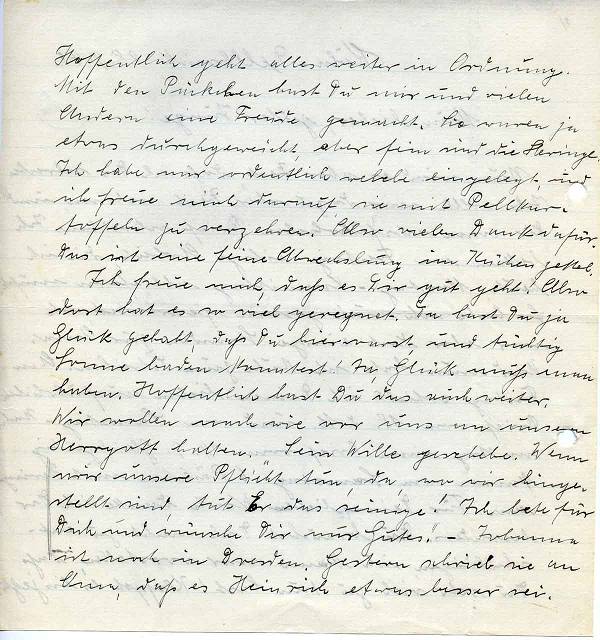 Hoffentlich geht alles weiter in Ordnung.
Mit den Päckchen hast Du mir und vielen
Andern eine Freude gemacht. Sie waren ja
etwas durchgeweicht, aber fein sind die Heringe.
Ich habe mir ordentlich welche eingelegt, und
ich freue mich darauf sie mit Pellkar-
toffeln zu verzehren. Also vielen Dank dafür.
Das ist eine feine Abwechslung im Küchen
Ich freue mich, daß es Dir gut geht. Also
dort hat es so viel geregnet. Da hast Du ja
Glück gehabt, daß Du hier warst, und tüchtig
Sonne baden konntest! Ja, Glück muß man
haben. Hoffentlich hast Du das auch weiter.
Wir wollen nach wie vor uns an unsern
Herrgott halten. Sein Wille geschehe. Wenn
wir unsere Pflicht tun, da, wo wir hinge-
stellt sind, tut Er das seinige! Ich bete für
Dich und wünsche Dir nur Gutes! – Johanna
ist noch in Dresden. Gestern schrieb sie an
Oma, daß es Heinrich etwas besser sei.